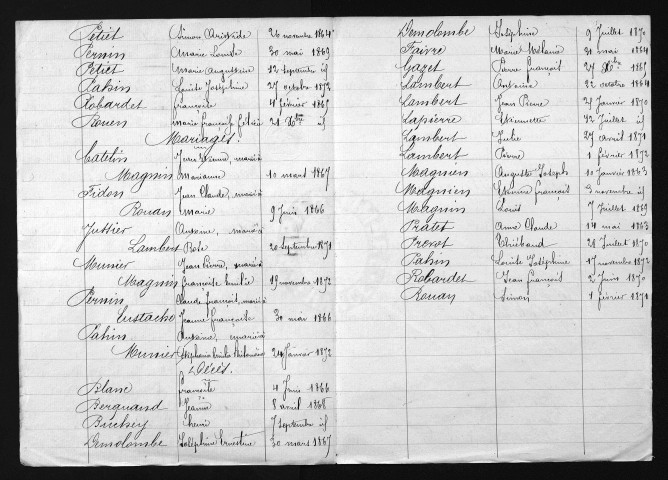 Petiet Simon Aristide 26 novembre 1864
Pernin Marie Louise 30 mai 1869
Petiet Marie Augustine 12 septembre id
Pahin Louise Joséphine 27 octobre 1872
Robardet françoise 4 février 1865
Rouen marie françoise félicie 21 Xbre id
Mariages.
Catelin Jean Etienne, marié à
Magnin Marianne 10 mars 1867
Fidon Jean Claude, marié à
Rouan Marie 9 Juin 1866
Juttier Auxanne, marié à
Lambert Rose 20 septembre 1871
Munier Jean Pierre, marié à
Magnin françoise Emilie 19 novembre 1872
Pernin Claude françois, marié à
Eustache Jeanne françoise 30 mai 1866
Pahin Auxanne, marié à
Munier Stéphanie Emilie Philomène 24 Janvier 1872
Décès.
Blanc françoise 4 Juin 1866
Bergnand Jeanne 8 avril 1868
Buchey henri 7 septembre id
Demolombe Joséphine Ernestine 30 mars 1867
Demolombe Joséphine 9 Juillet 1870
Faivre Marie Mélanie 31 mai 1864
Gazet Pierre françois 27 Xbre 1865
Lambert Antoine 22 octobre 1864
Lambert Jean Pierre 21 Janvier 1870
Lapierre Etiennette 12 Juillet id
Lambert Julie 27 avril 1871
Lambert Pierre 1 février 1872
Magnien Auguste Joseph 10 Janvier 1863
Magnien Etienne françois 3 novembre id
Magnin Louis 7 Juillet 1869
Pratet Anne Claude 14 mai 1863
Prevot Thiébaud 21 Juillet 1870
Pahin Louise Joséphine 17 novembre 1872
Robardet Jean françois 2 Juin 1870
Rouan Simon 1 février 1871